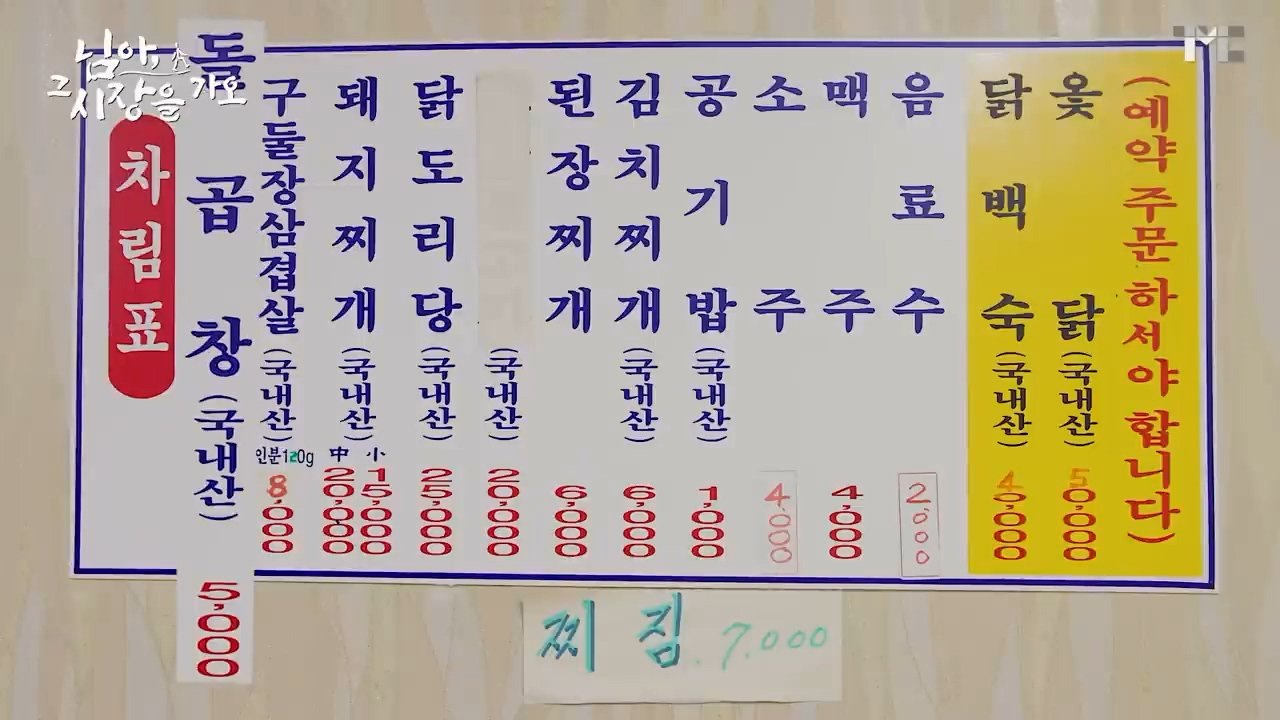 님아,
그 시장을 가오
TMC
차림표
돌곱창(국내산) 5,000
구둘장삼겹살(국내산) 인분120g 8,000
돼지찌개(국내산) 中 20,000 小 15,000
닭도리당(국내산) 25,000
(국내산) 20,000
된장찌개 6,000
김치찌개(국내산) 6,000
공기밥(국내산) 1,000
소주 4,000
맥주 4,000
음료수 2,000
닭백숙(국내산) 40,000
옻닭(국내산) 50,000
(예약주문하서야합니다)
찌짐. 7.000